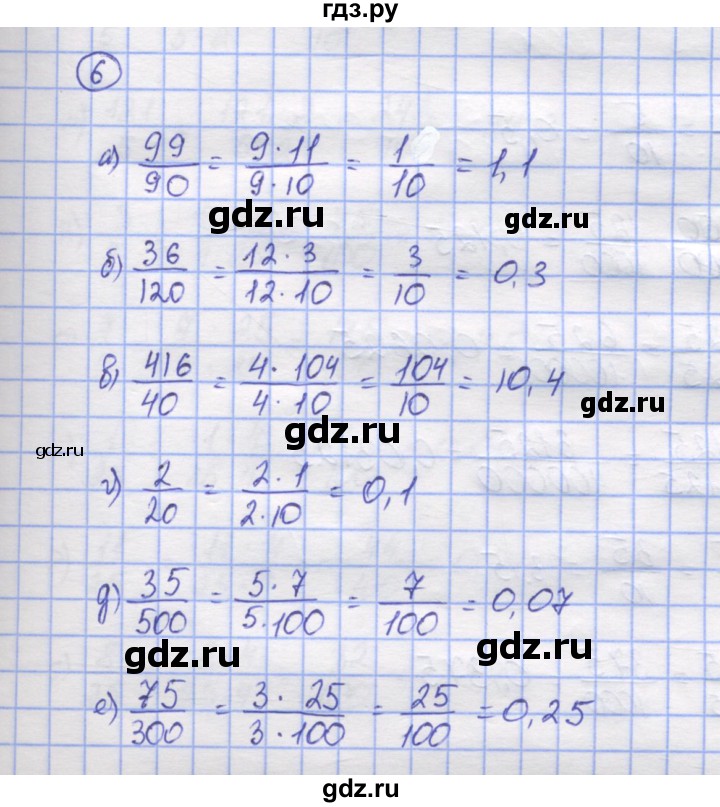 гдз.ру
6
а) 99/90 = 9·11/9·10 = 1/10 = 1,1
gdz.ru gdz.ru
б) 36/120 = 12·3/12·10 = 3/10 = 0,3
в) 416/40 = 4·104/4·10 = 104/10 = 10,4
gdz.ru
gdz.ru
gdz.ru
г) 2/20 = 2·1/2·10 = 0,1
д) 35/500 = 5·7/5·100 = 7/100 = 0,07
gdz.ru gdz.ru
е) 75/300 = 3·25/3·100 = 25/100 = 0,25
gdz.ru